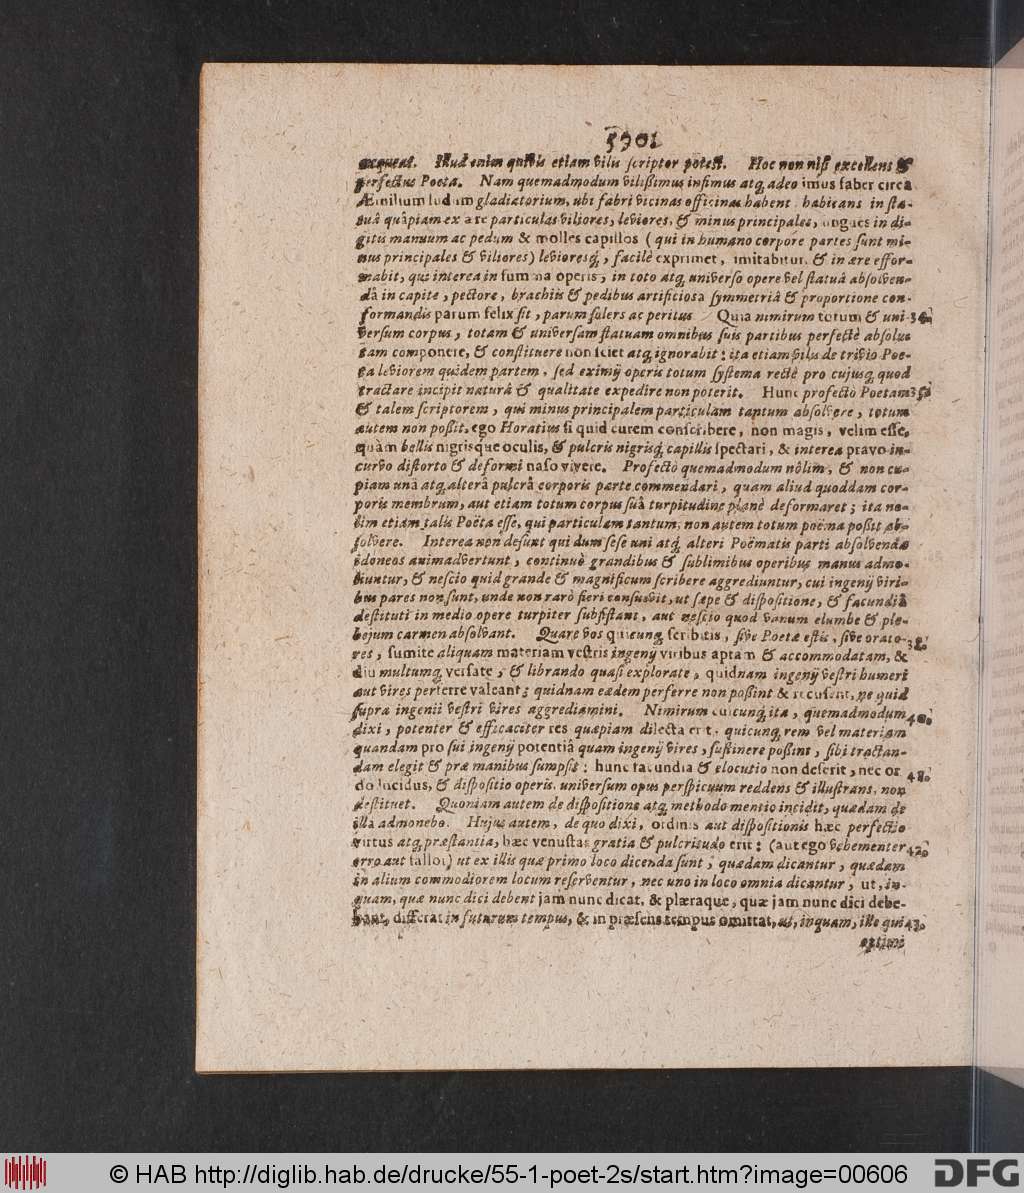 590
acqueat. Illud enim quivis etiam vilis scriptor potest. Hoc non nisi excellens &
perfectus Poeta. Nam quemadmodum vilißimus infimus atq; adeo imus faber circa
Æmilium ludum gladiatorium, ubi fabri vicinas officinas habent habitans in sta-
tuâ quâpiam ex ære particulas viliores, leviores, & minus principales, ungues in di-
gitis manuum ac pedum & molles capillos ( qui in humano corpore partes sunt mi-
nus principales & viliores) levioresq;, facilè exprimet, imitabitur, & in ære effor-
mabit, qui interea in summa operis, in toto atq; universo opere vel statuâ absolven-
dâ in capite, pectore, brachiis & pedibus artificiosa symmetriâ & proportione con-
formandis parum felix sit, parum solers ac peritus Quia nimirum totum & uni- 34.
versum corpus, totam & universam statuam omnibus suis partibus perfectè absolu-
tam componere, & constituere non sciet atq; ignorabit: ita etiam vilis de trivio Poe-
ta leviorem quidem partem, sed eximij operis totum systema rectè pro cujusq; quod
tractare incipit naturâ & qualitate expedire non poterit. Hunc profectò Poetam 35.
& talem scriptorem, qui minus principalem particulam tantum absolvere, totum
autem non poßit, ego Horatius si quid curem conscribere, non magis, velim esse,
quàm bellis nigrisque oculis, & pulcris nigrisq; capillis spectari, & interea pravo in-
curvo distorto & deformi naso vivere. Profectò quemadmodum nôlim, & non cu-
piam unâ atq; alterâ pulcrâ corporis parte commendari, quam aliud quoddam cor-
poris membrum, aut etiam totum corpus suâ turpitudine planè deformaret; ita no-
lim etiam talis Poëta esse, qui particulam tantum, non autem totum poëma poßit ab-
solvere. Interea non desunt qui dum sese uni atq; alteri Poëmatis parti absolvendæ
idoneos animadvertunt, continuò grandibus & sublimibus operibus manus admo-
liuntur, & nescio quid grande & magnificum scribere aggrediuntur, cui ingenij viri-
bus pares non sunt, unde non rarò fieri consuevit, ut sæpe & dispositione, & facundiâ
destituti in medio opere turpiter subsistant, aut nescio quod vanum elumbe & ple-
bejum carmen absolvant. Quare vos quicunq; scribitis, sive Poetæ estis, sive orato- 38.
res, sumite aliquam materiam vestris ingenij viribus aptam & accommodatam, &
diu multumq; versate, & librando quasi explorate, quidnam ingenij vestri humeri
aut vires perferre valeant; quidnam eædem perferre non poßint & recusent, ne quid
supra ingenii vestri vires aggrediamini. Nimirum cuicunq; ita, quemadmodum 40.
dixi, potenter & efficaciter res quæpiam dilecta erit, quicunq; rem vel materiam
quandam pro sui ingenij potentiâ quam ingenij vires, sustinere poßint, sibi tractan-
dam elegit & præ manibus sumpsit: hunc facundia & elocutio non deserit, nec or- 41.
do lucidus, & dispositio operis, universum opus perspicuum reddens & illustrans, non
destituet. Quoniam autem de dispositione atq; methodo mentio incidit, quædam de
illâ admonebo. Hujus autem, de quo dixi, ordinis aut dispositionis hæc perfectio
virtus atq; præstantia, hæc venustas gratia & pulcritudo erit: (aut ego vehementer 42.
erro aut fallor) ut ex illis quæ primo loco dicenda sunt, quædam dicantur, quædam
in alium commodiorem locum reserventur, nec uno in loco omnia dicantur, ut, in-
quam, quæ nunc dici debent jam nunc dicat, & plæraque, quæ jam nunc dici debe-
bant, differat in futurum tempus, & in præsens tempus omittat, ut, inquam, ille qui 43.
optimi
© HAB http://diglib.hab.de/drucke/55-1-poet-2s/start.htm?image=00606
DFG